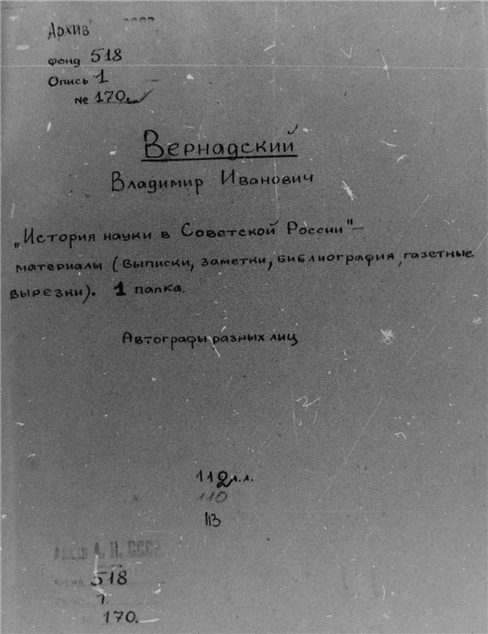 Архив СССР
фонд 518
Опись 1
№ 170
Вернадский
Владимир Иванович
„История науки в Советской России"–
материалы (выписки, заметки, библиография, газетные
вырезки). 1 папка.
Автографы разных лиц
112 л.л.
110
113
Архив А. Н. СССР
518
1.
170.